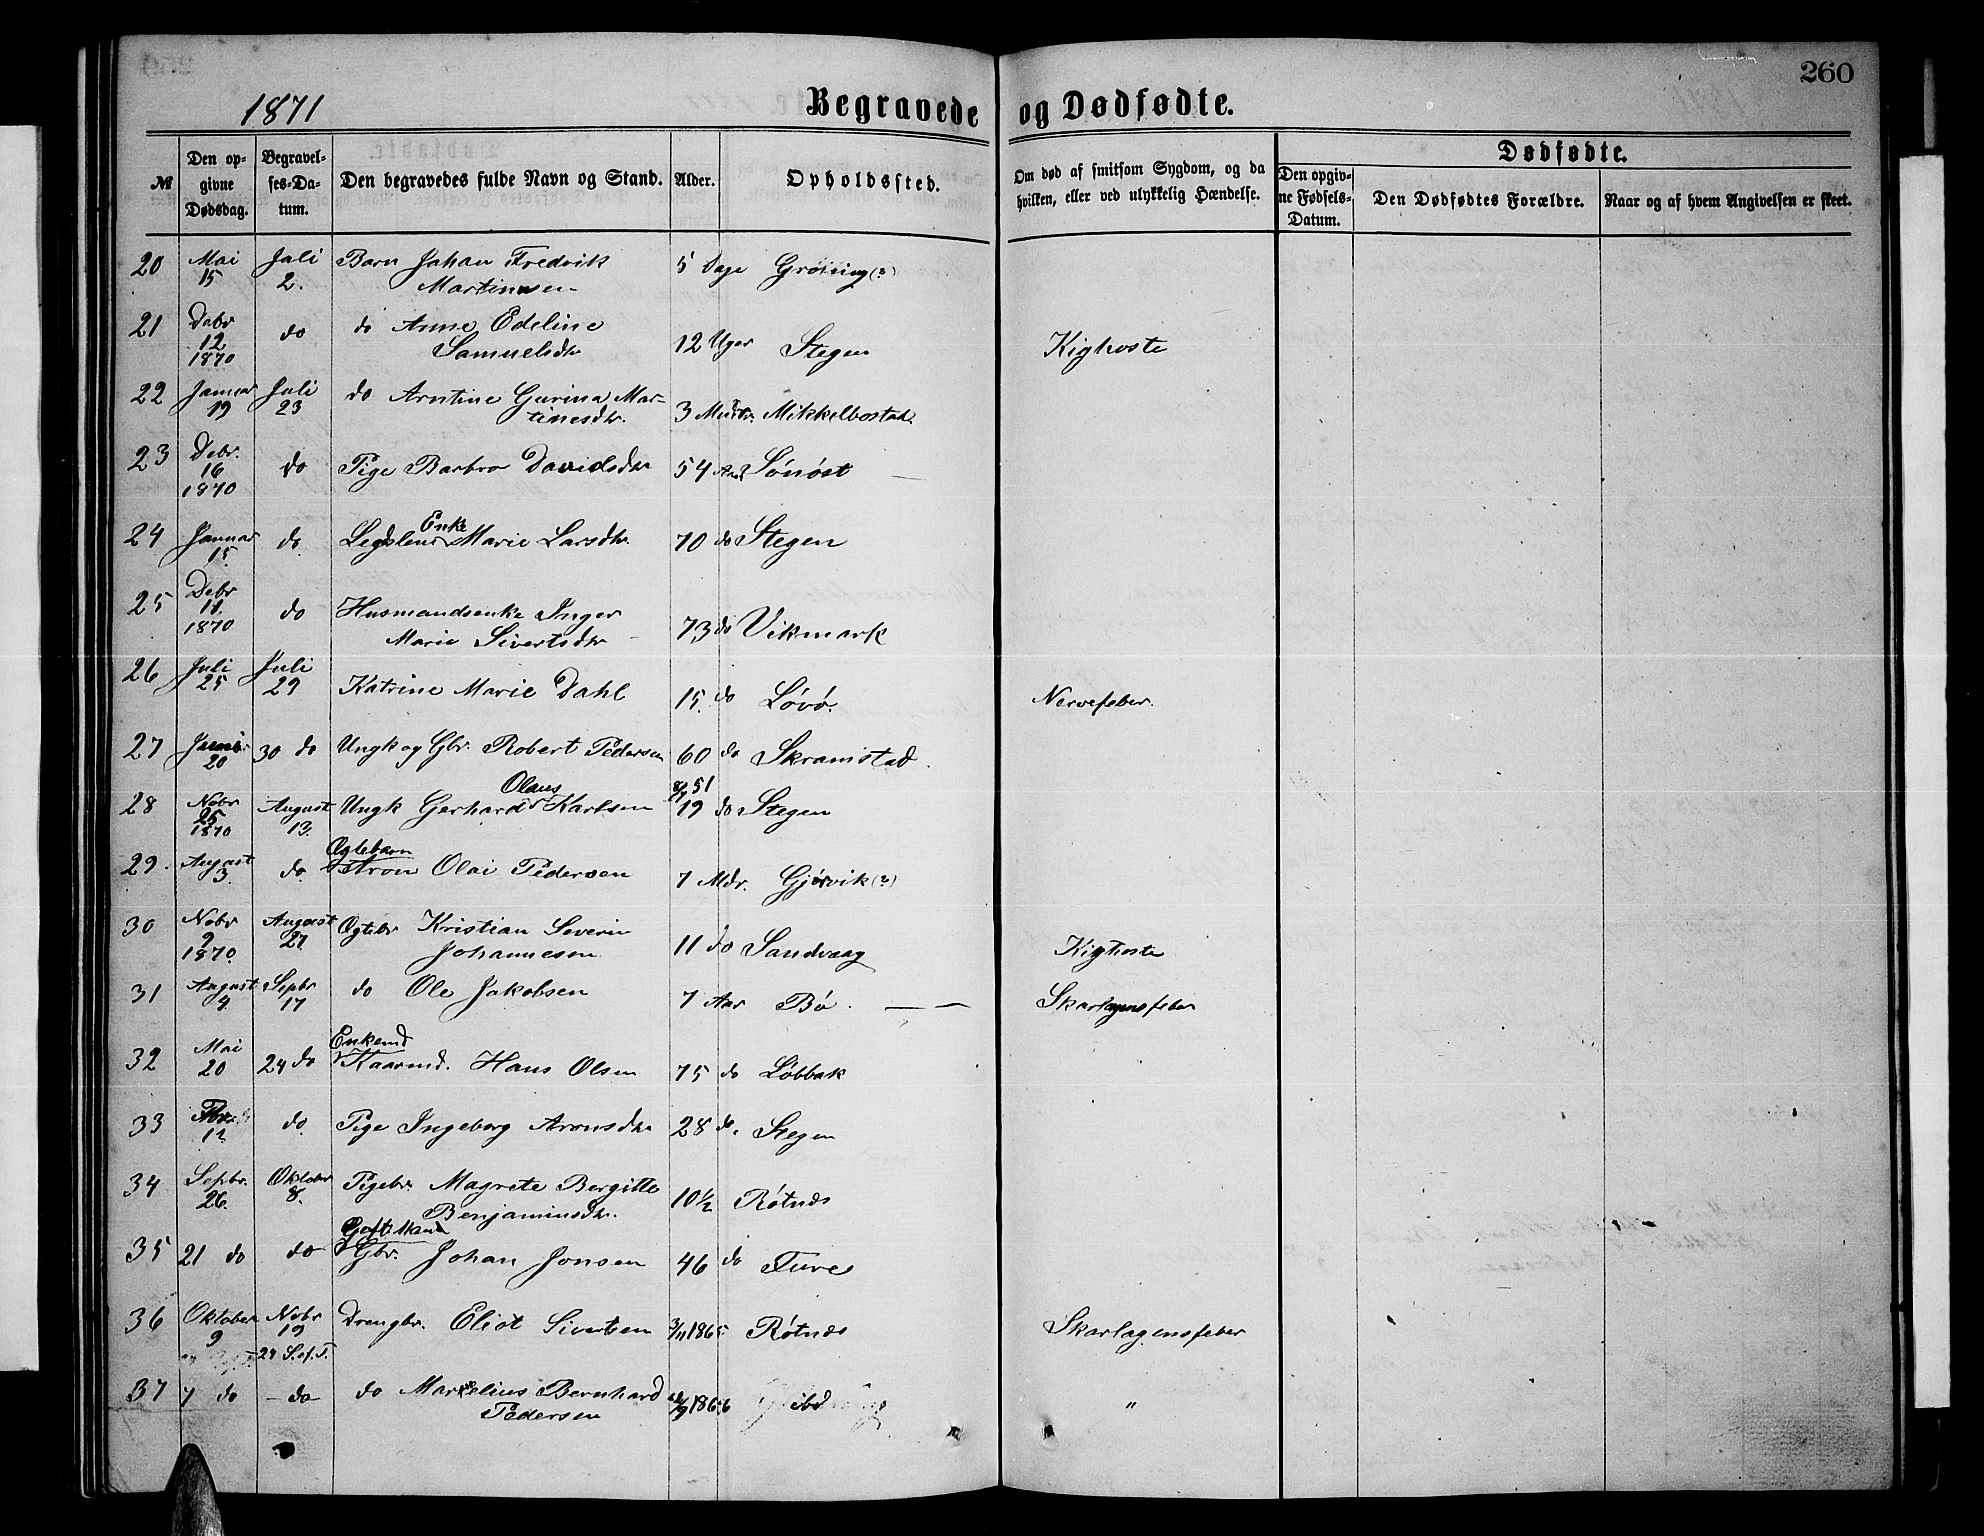 260
1871
Begravede og Dødfødte.
№
Den op-
givne
Dødsdag.
Begravel-
ses-Da-
tum.
Den begravedes fulde Navn og Stand.
Alder.
Opholdssted.
Om død af smitsom Sygdom, og da
hvilken, eller ved ulykkelig Hændelse.
Dødfødte.
Den opgiv-
ne Fødsels-
Datum.
Den Dødfødtes Forældre.
Naar og af hvem Angivelsen er skeet.
20 Mai 15 Juli 2. Barn Johan Fredrik
Martinusen 5 Dage Grøning (?)
21 Debr 12 1870 do do Anne Edeline
Samuelsdtr 12 Uger Stegen Kighoste
22 Januar 19 Juli 23 do Arntine Gurina Mar-
tinesdtr. 3 Mikkelbostad
23 Debr. 16 1870 do Pige Barbro Davidsdtr 54 Aar Sønøst
24 Januar 15. do. Legdslem Enke Marie Larsdtr. 70 do Stegen
25 Debr 11. 1870 do Husmandsenke Inger
Marie Sivertsdtr 73 do Vikmark
26 Juli 25 Juli 29 Katrine Marie Dahl 15. do Løvø. Nervefeber.
27 20 30 do Ungk og Gbr. Robert Pedersen 60 do Skramstad.
28 Nobr 25 1870 August 13. Ungk Gerhard Olaus Karlsen 8/7 51 19 do Stegen
29. August 3. do. Ægtebarn Aron Olai Pedersen 7 Mdr. Gjørvik (?)
30 Nobr 9 1870. August 27 Ægtebr Kristian Severin
Johannesen 11 do Sandvaag Kighoste
31 August 4. Sepbr 17 do Ole Jakobsen 7 Aar Bø. Skarlagensfeber
32 Mai 20 24 do Enkemd Kaarmd. Hans Olsen 75 do Løbbak
33 12 do. Pige Ingeborg Aronsdtr 28 do. Stegen
34 Sepbr. 26. Oktober 8. Pigebr. Magrete Bergitte
Benjaminsdtr. 10½ Røtnes
35 21 do do Gift Mand Gbr. Johan Jonsen 46 do Ture
36 Oktober 9 Nobr 19 Drengbr. Eliot Sivertsen 3/11 1865 Røtnes Skarlagensfeber
29 S. ef. T.
37 7 do - do do Markelius Bernhard
Pedersen 1866 ibd "